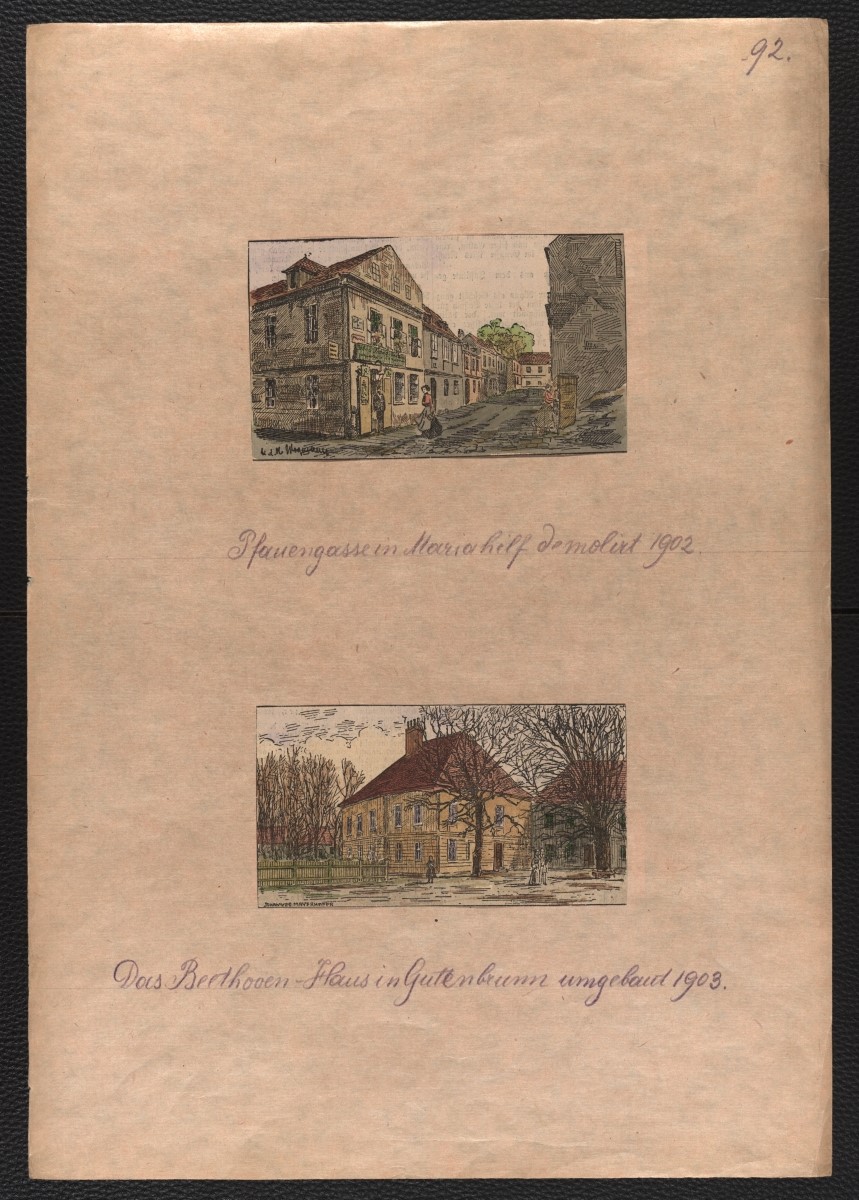 92.
Pfauengasse in Mariahilf demolirt 1902.
Das Beethoven-Haus in Guttenbrunn umgebaut 1903.